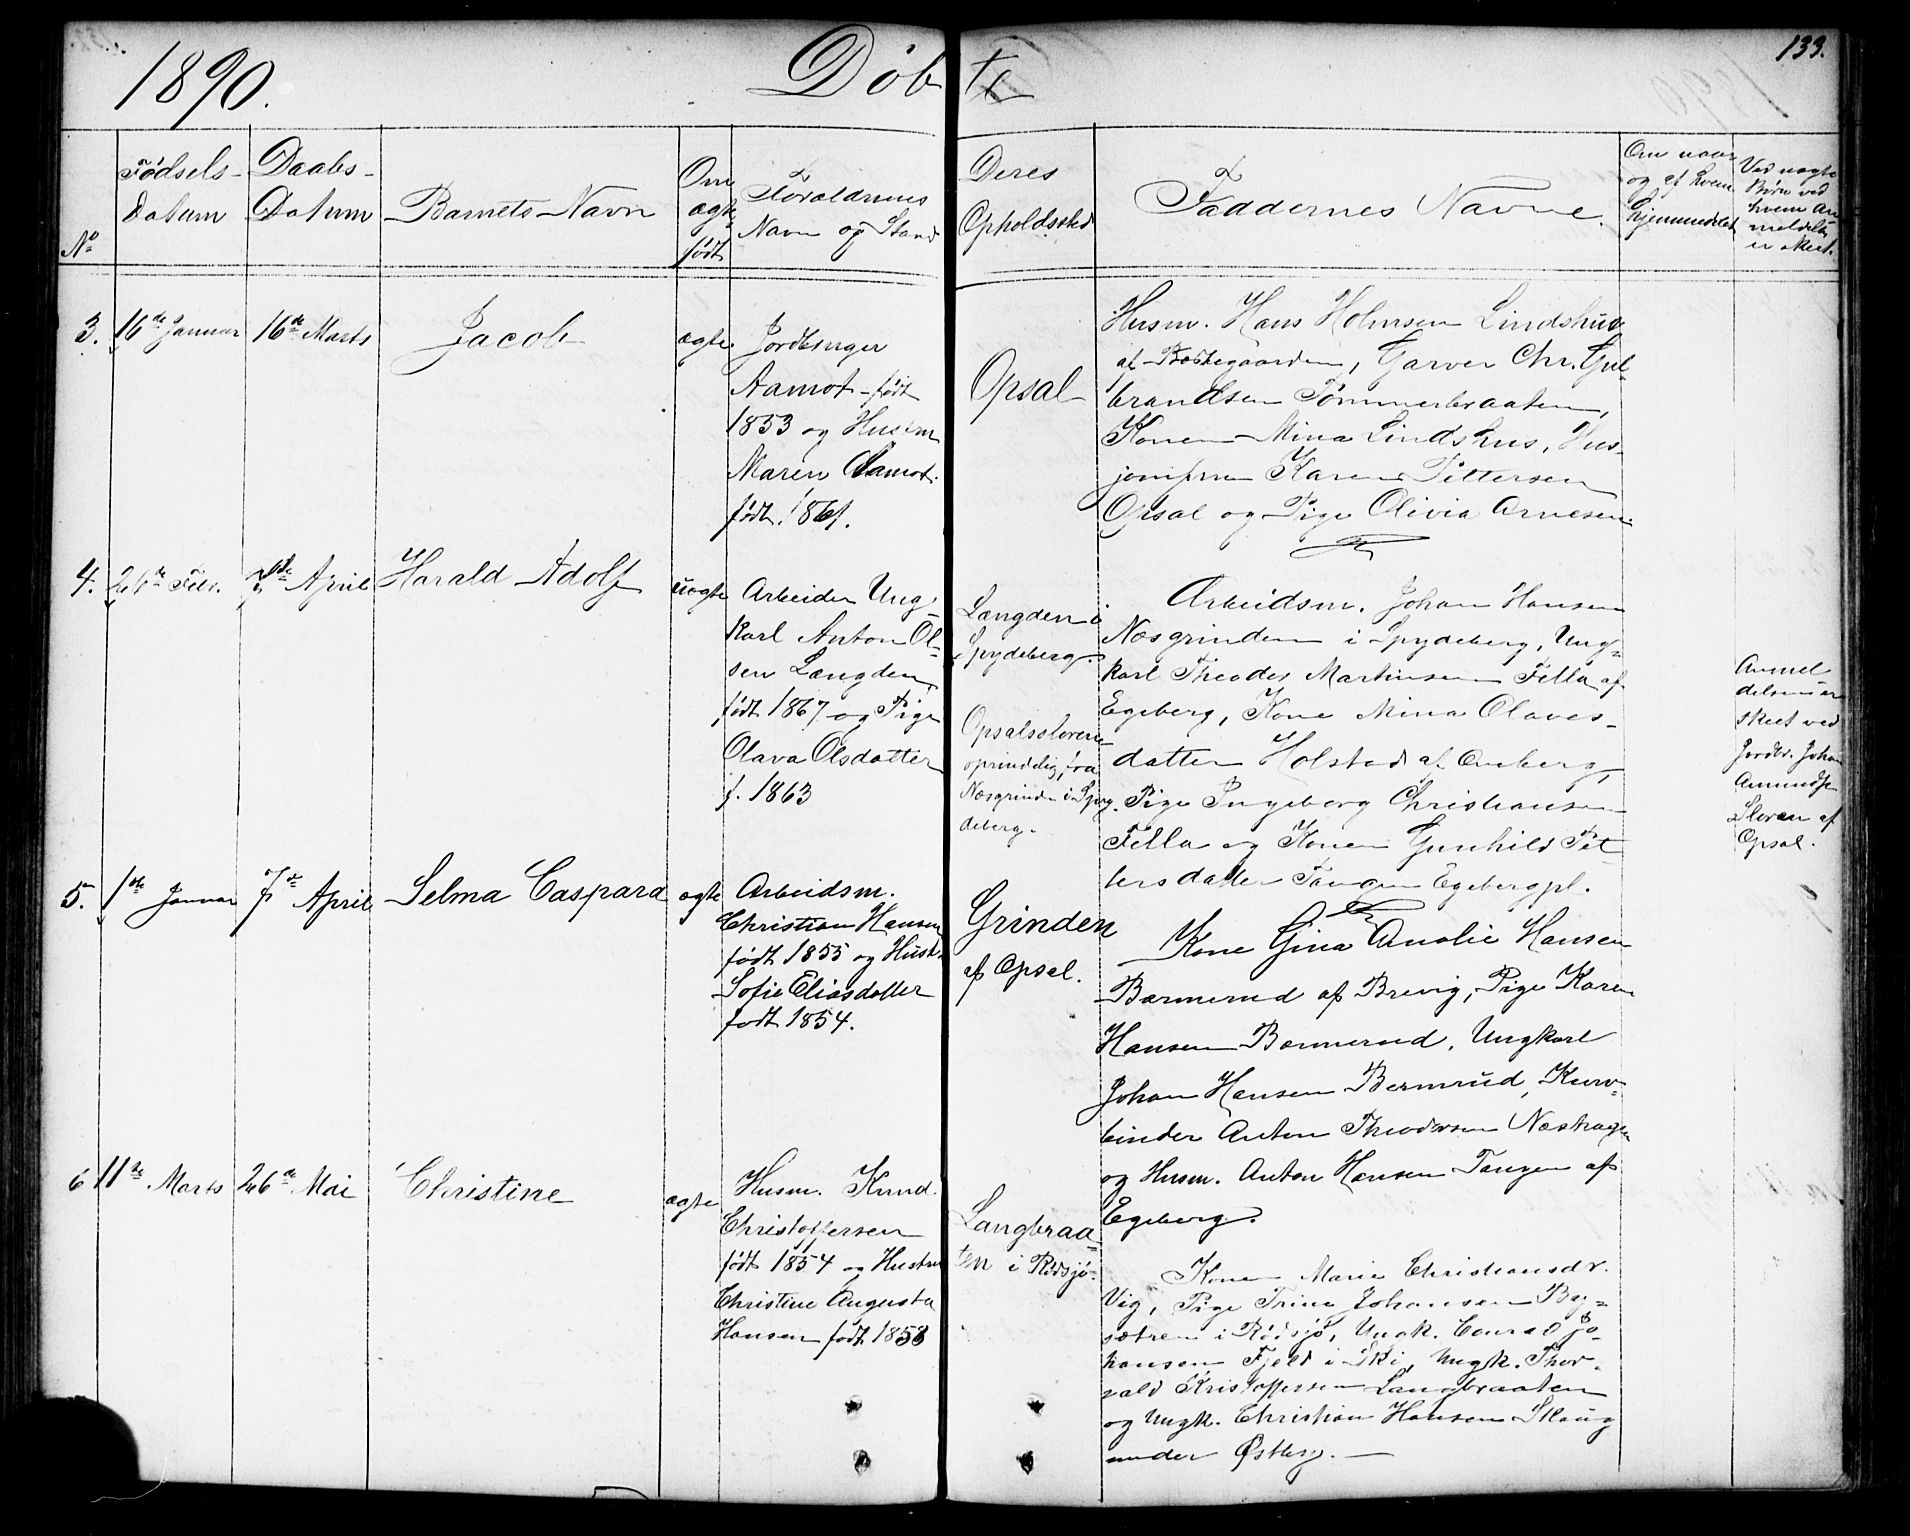 1890.
Døbte
133.
No
Fødsels-
Datum
Daabs-
Datum
Barnets Navn
Om
ægte
født
Forældrenes
Navn og Stand
Deres
Opholdssted
Faddernes Navne.
Om naar
og af hvem
hjemmedøbt
Ved uægte
Børn ved
hvem An-
meldelse
er skeet.
3.
16de Januar
16de Marts
Jacob
ægte
Jordbruger
Aamot født
1853 og Hustru
Maren Aamot
født 1861.
Opsal
Husm. Hans Holmsen Lindshus
af Børtegaarden, Garver Chr. Gul-
brandsen Tømmerbraaten,
Konen Mina Lindshus, Hus-
jomfru Karen Pettersen
Opsal og Pige Olivia Arnesen.
4.
Febr.
7de April
Harald Adolf
uægte
Arbeider Ung-
karl Anton Ol-
sen Langden
født 1867 og Pige
Olava Olsdatter
f. 1863
Langden i
Spydeberg.
Opsalsloven
oprindelig fra
Næsgrinden i Spy-
deberg.
Arbeidsm. Johan Hansen
Næsgrinden i Spydeberg, Ung-
karl Theodor Martinsen Fella af
Egeberg, Kone Mina Olaves-
datter Holstad af
Pige Ingeborg Christiansen
Fella og Konen Gunhild Pet-
tersdatter Tangen Egebergpl.
Anmel-
delsen er
skeet ved
Jordbr. Johan
Amundsen
Sloran af
Opsal.
5.
1ste Januar
7de April
Selma Caspara
ægte
Arbeidsm.
Christian Hansen
født 1855 og Hustr.
Sofie Eliasdatter
født 1854.
Grinden
af Opsal.
Kone Gina Amalie Hansen
Bærmerud af Brevig, Pige Karen
Hansen Bærmerud, Ungkarl
Johan Hansen Bermrud, Kurv-
binder Anton Theodorsen Næshagen
og Husm. Anton Hansen Tangen af
Egeberg.
6
11te Marts
26de Mai
Christine
ægte
Husm. Knud
Christoffersen
født 1854 og Hustru
Christine Augusta
Hansen født 1858
Langbraa-
ten i Rødsjø.
Konen Marie Christiansdr.
Vig, Pige Trine Johansen By-
sætren i Rødsjø, Ungk. Conrad Jo-
hansen Fjeld i Ski, Ungk. Thor-
vald Kristoffersen Langbraaten
og Ungk. Christian Hansen Skaug
under Østberg.